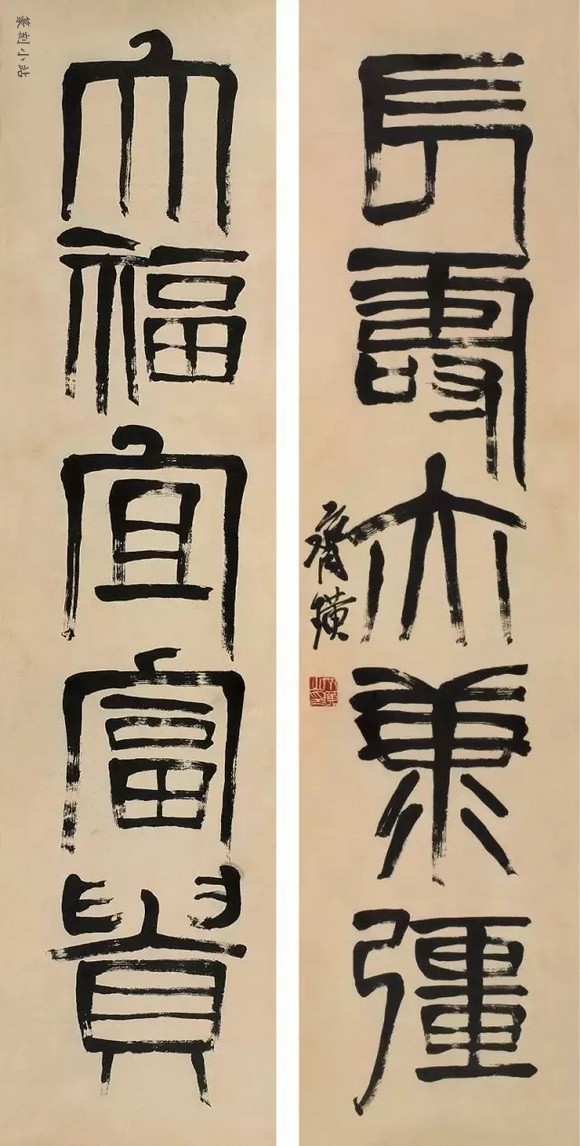 長壽亦兼彊
大福宜富貴
齊璜
篆刻小站